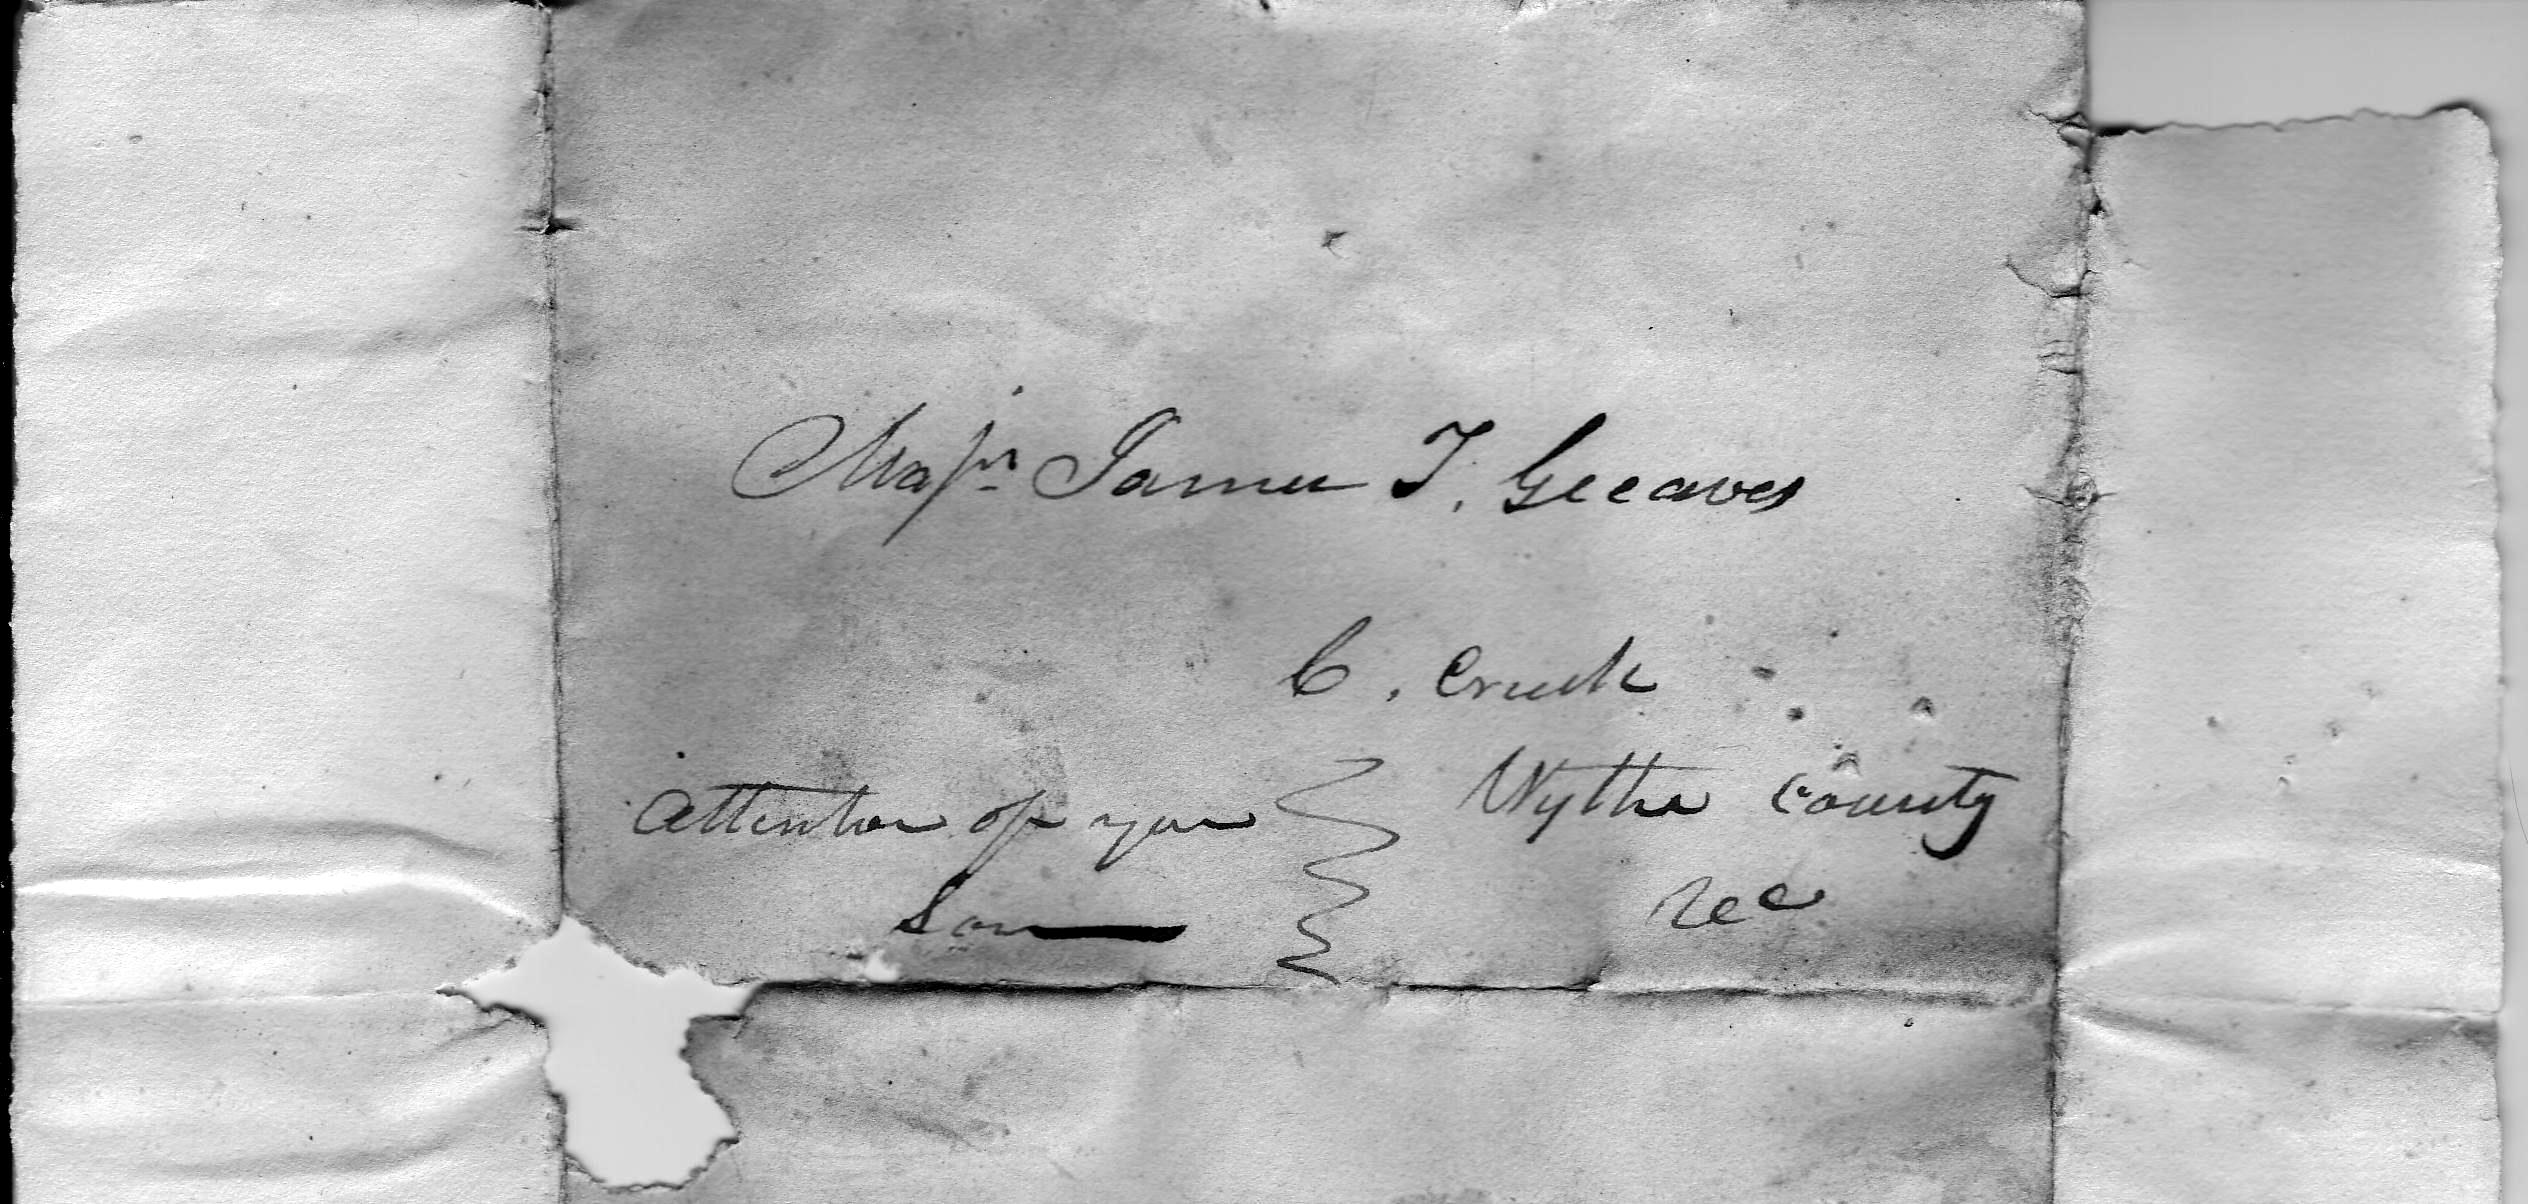 Majr. James T. Greaves
C. Creek
Wythe County
Attention of your
Son